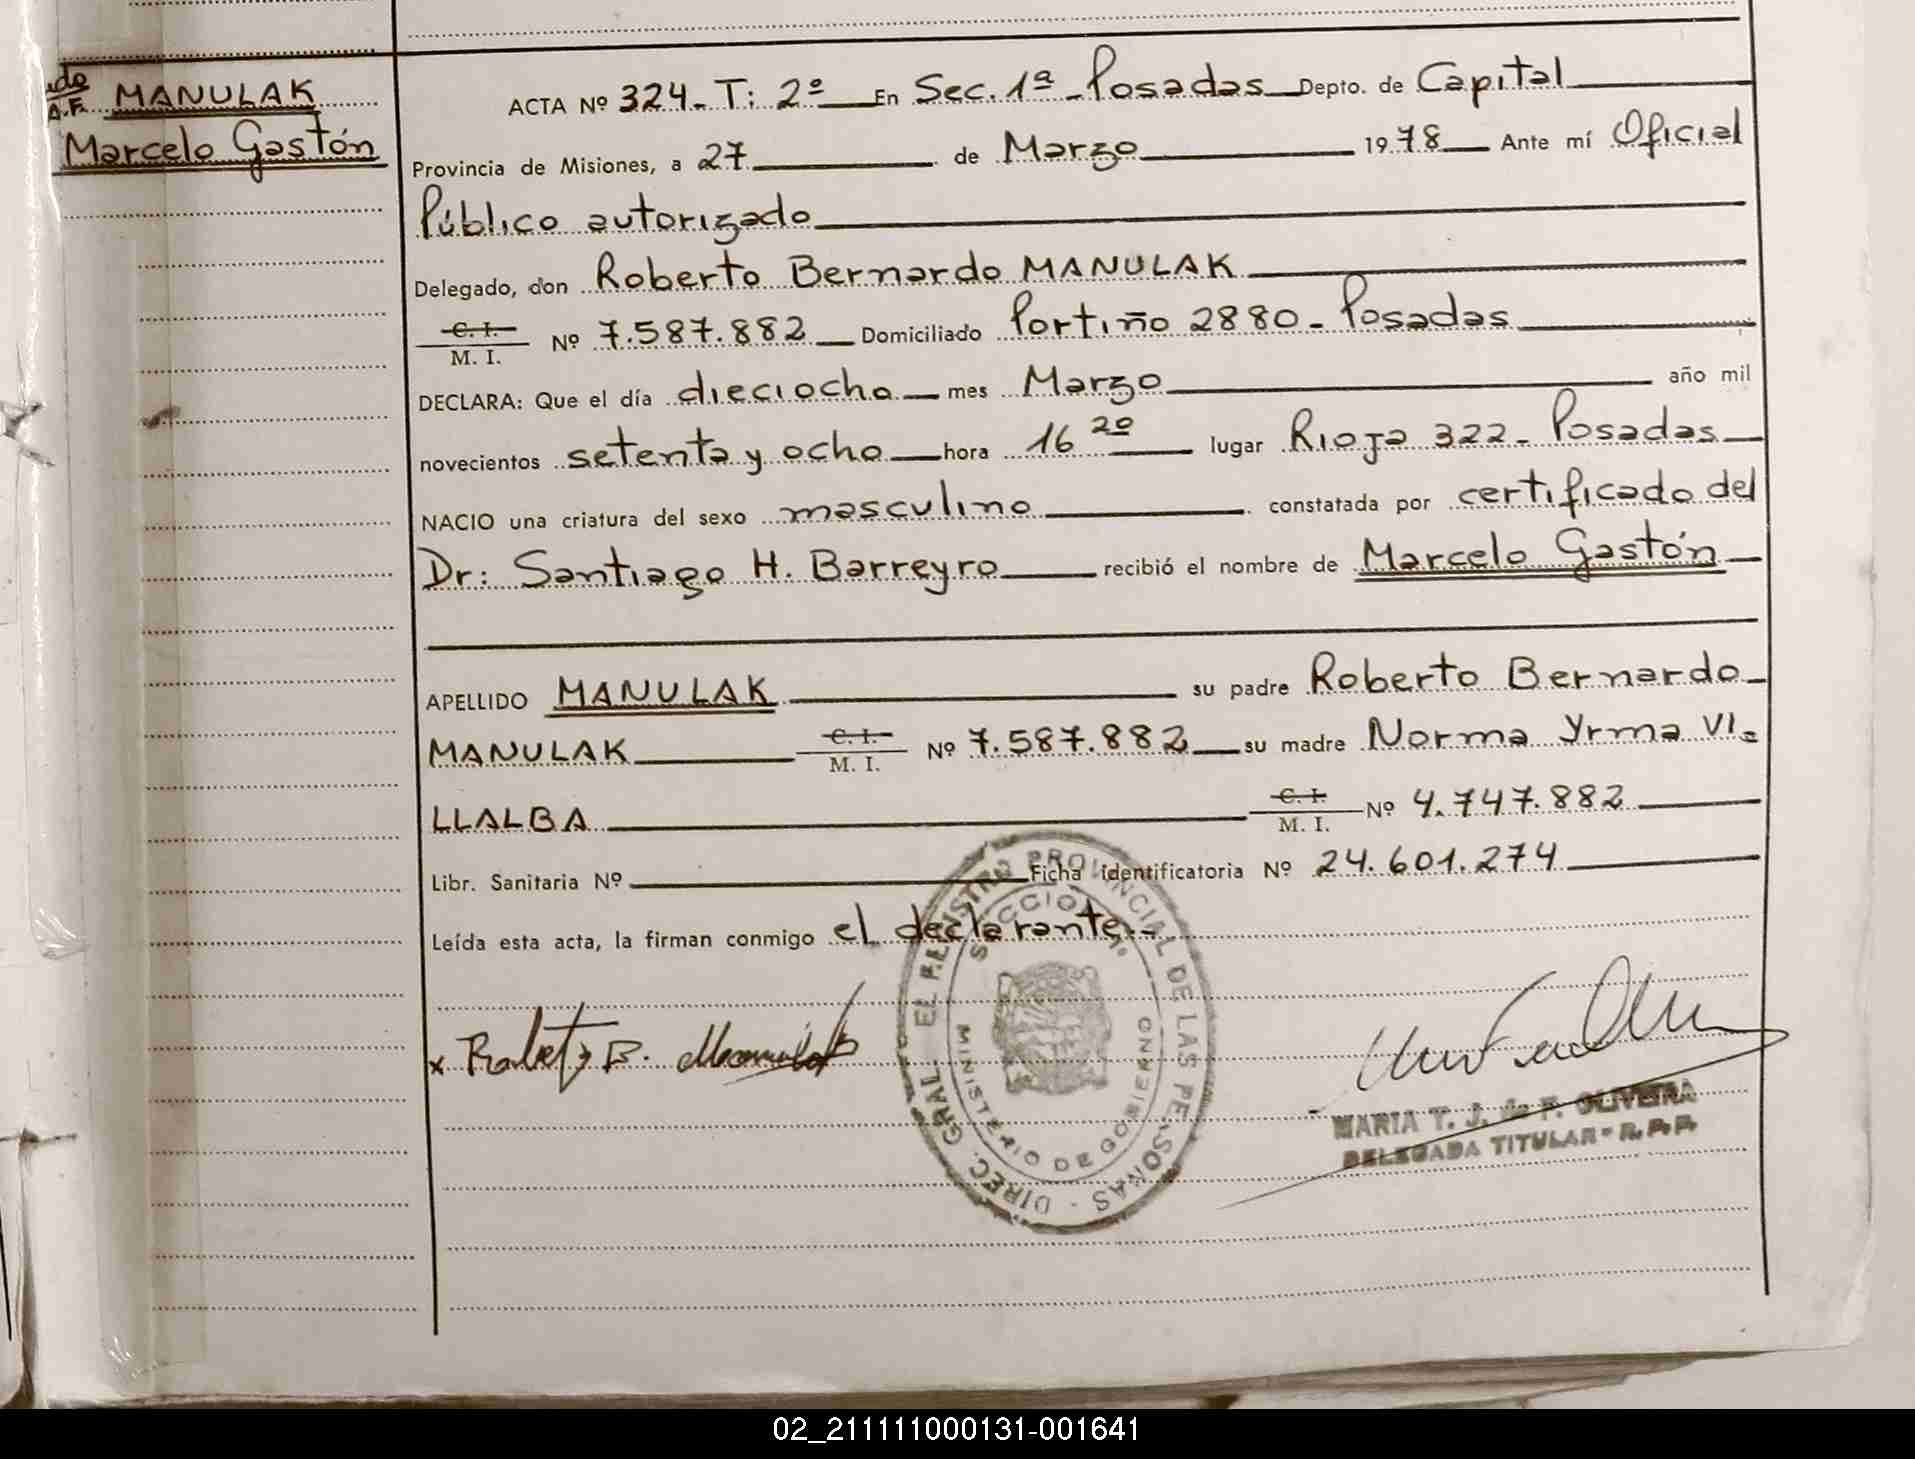 A.F. MANULAK
Marcelo Gastón
ACTA Nº 324- T: 2º En Sec. 1ª - Posadas Depto. de Capital
Provincia de Misiones, a 27 de Marzo 1978 Ante mí Oficial
Público autorizado
Delegado, don Roberto Bernardo MANULAK
C. I.
M. I. Nº 7.587.882 Domiciliado Portiño 2880 - Posadas
DECLARA: Que el día dieciocho mes Marzo año mil
novecientos setenta y ocho hora 16 20 lugar Rioja 322 - Posadas
NACIO una criatura del sexo masculino constatada por certificado del
Dr: Santiago H. Barreyro recibió el nombre de Marcelo Gastón
APELLIDO MANULAK su padre Roberto Bernardo
MANULAK C. I. M. I. Nº 7.587.882 su madre Norma Yrma VI=
LLALBA C. I. M. I. Nº 4.747.882
Libr. Sanitaria Nº Ficha Identificatoria Nº 24.601.274
Leída esta acta, la firman conmigo el declarante.-
x Roberto B. Manulak
DIREC. GRAL. EL REGISTRO PROVINCIAL DE LAS PERSONAS -
MINISTERIO DE GOBIERNO
MARIA T. J. de F. OLIVEIRA
DELEGADA TITULAR - R. P. P.
02_211111000131-001641